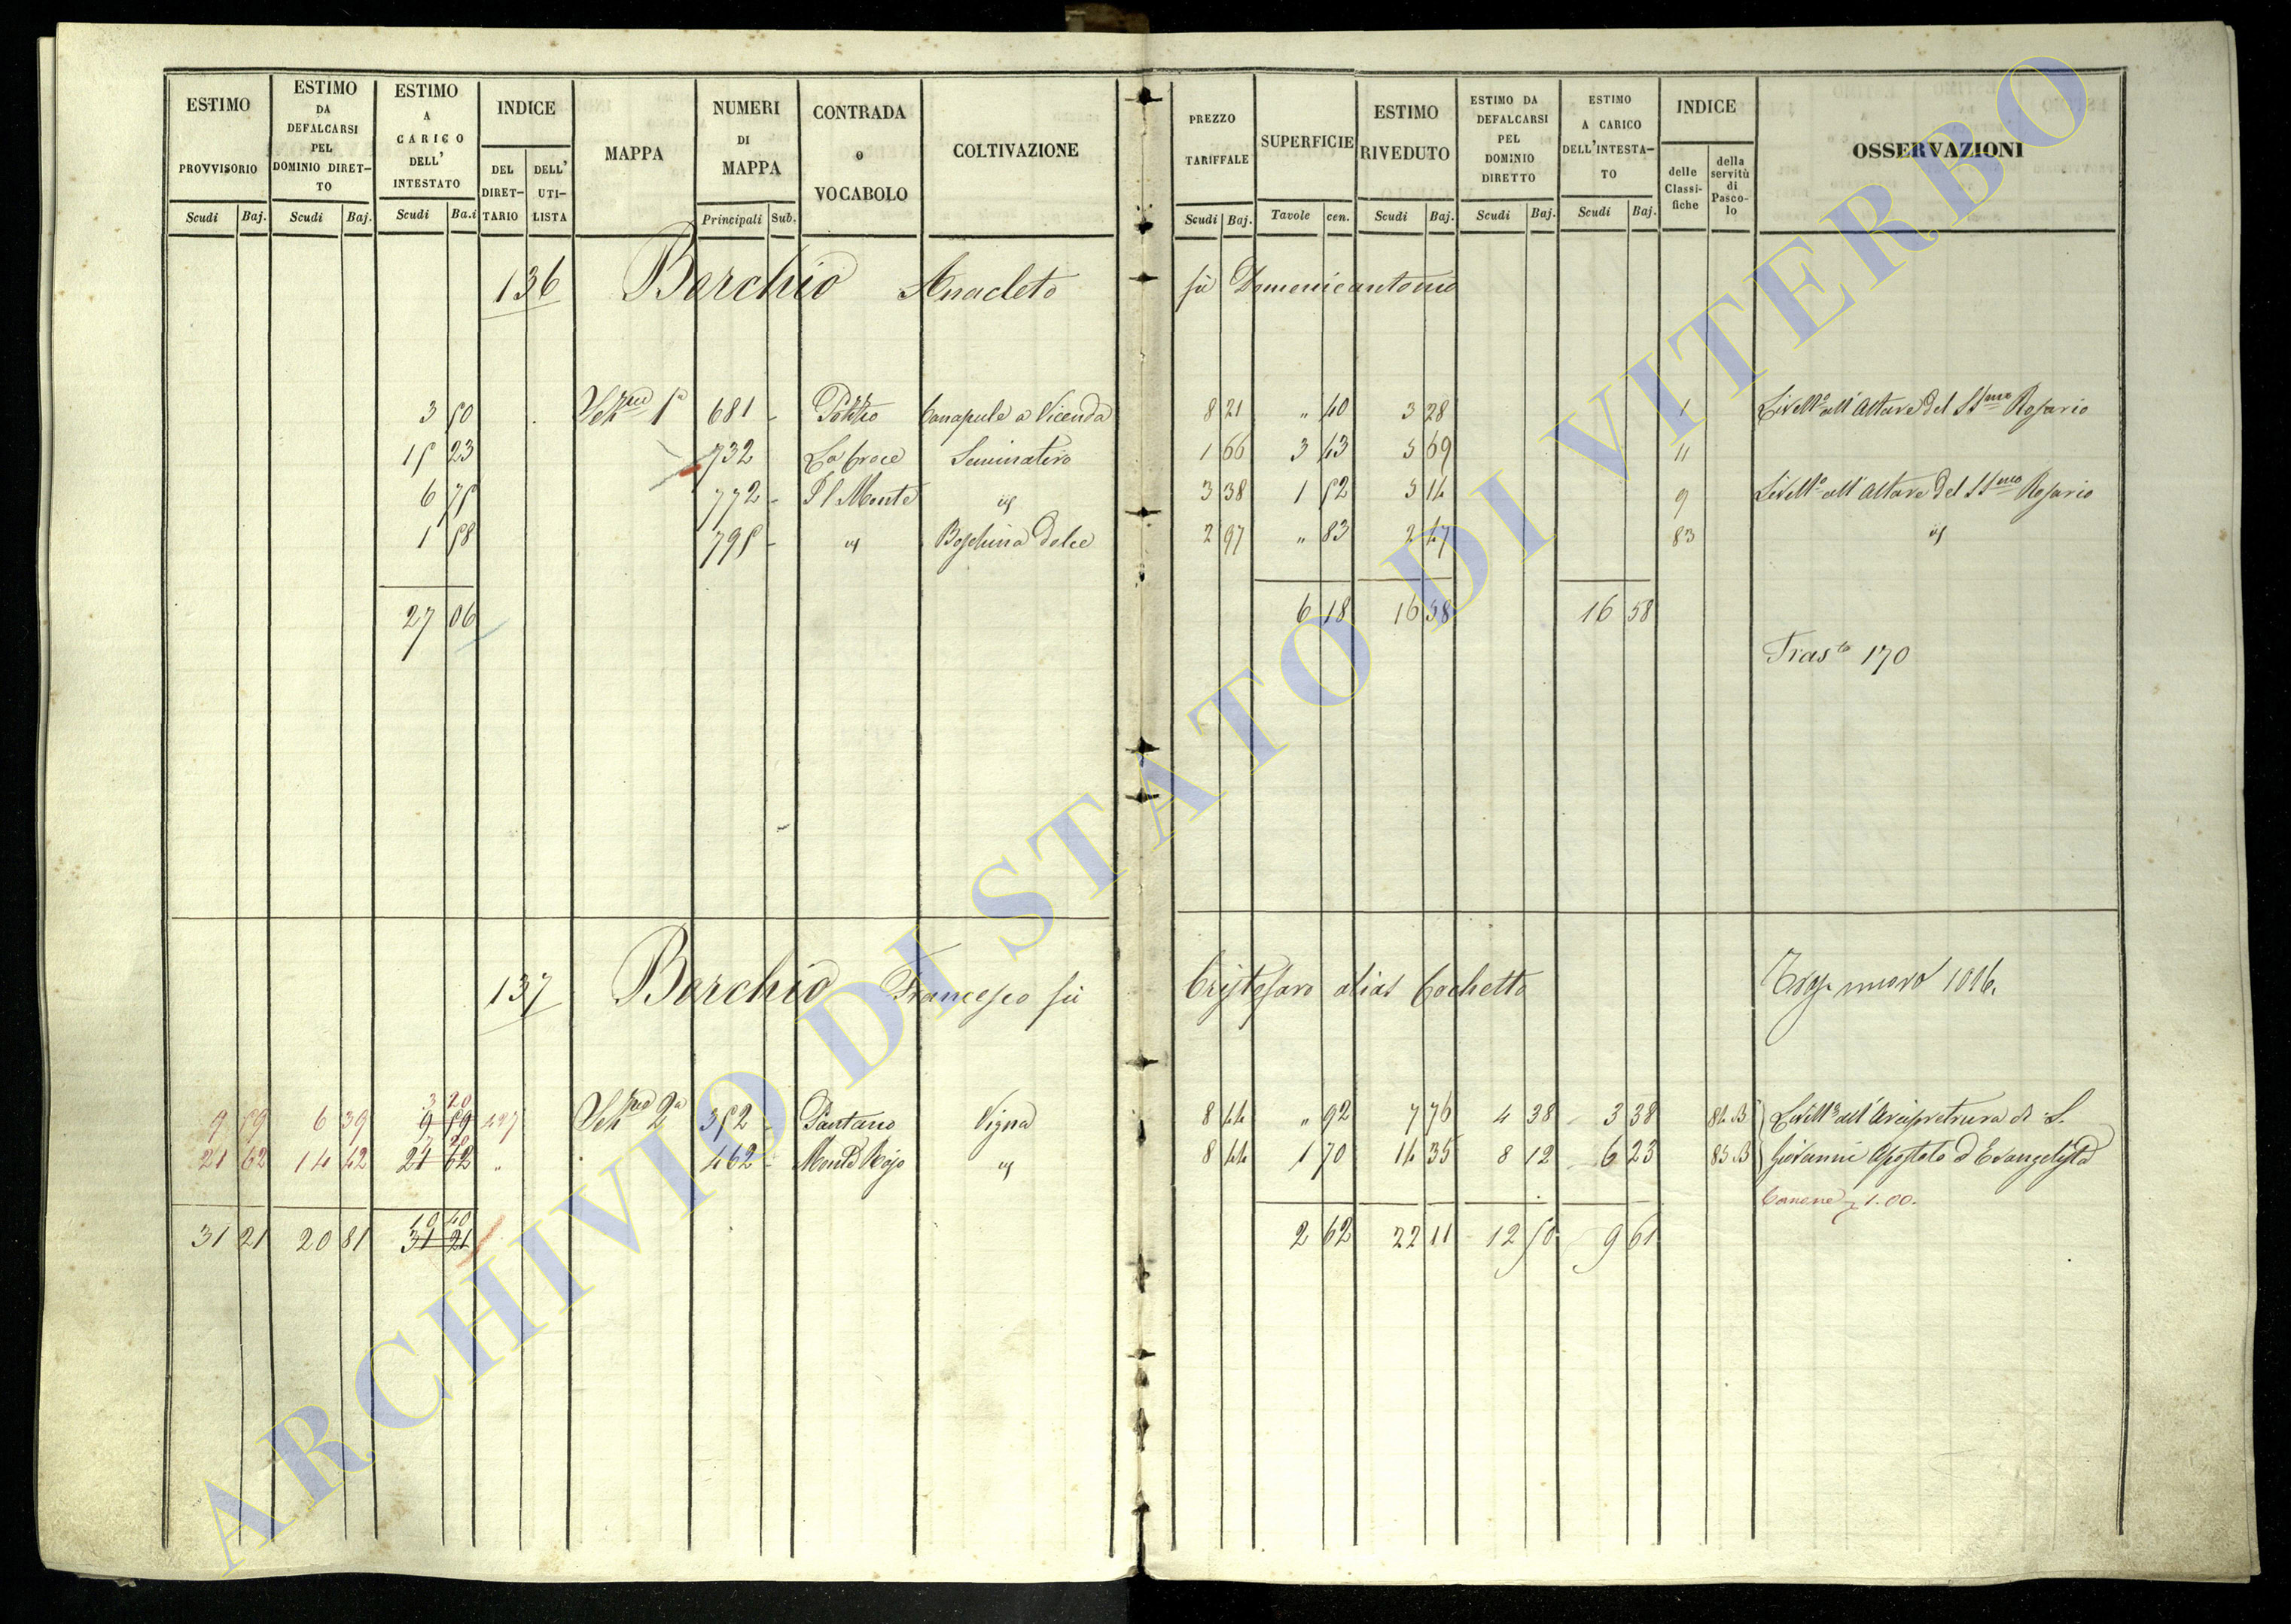 ESTIMO PROVVISORIO Scudi Baj.
ESTIMO DA DEFALCARSI PEL DOMINIO DIRETTO Scudi Baj.
ESTIMO A CARICO DELL' INTESTATO Scudi Ba.i
INDICE DEL DIRETTARIO DELL' UTILISTA
MAPPA
NUMERI DI MAPPA Principali Sub.
CONTRADA o VOCABOLO
COLTIVAZIONE
PREZZO TARIFFALE Scudi Baj.
SUPERFICIE Tavole cen.
ESTIMO RIVEDUTO Scudi Baj.
ESTIMO DA DEFALCARSI PEL DOMINIO DIRETTO Scudi Baj.
ESTIMO A CARICO DELL'INTESTATO Scudi Baj.
INDICE delle Classifiche della servitù di Pascolo
OSSERVAZIONI
136 Borchio Anacleto fù Domenicantonio
3 50 1a 681 - Pozzo Canapule a Vicenda 8 21 " 40 3 28 1 Livello all'Altare del SSmo Rosario
15 23 732 La Croce Seminativo 1 66 3 43 5 69 11
6 75 772 - Il Monte id 3 38 1 52 5 14 9 Livello all'Altare del SSmo Rosario
1 58 795 - id Boschina dolce 2 97 " 83 2 47 83 id
27 06 6 18 16 58 16 58
Trasto 170
137 Borchio Francesco fù Cristofaro alias Cochetto nuovo 1016.
3 20
9 59 6 39 9 59 427 2a 352 - Pantano Vigna 8 44 " 92 7 76 4 38 3 38 84 B Livello all'Arcipretura di S.
7 20
21 62 14 42 21 62 " 462 - Monte Rojo id 8 44 1 70 14 35 8 12 6 23 85 B Giovanni Apostolo ed Evangelista
Canone 1.00.
10 40
31 21 20 81 31 21 2 62 22 11 12 50 9 61
ARCHIVIO DI STATO DI VITERBO